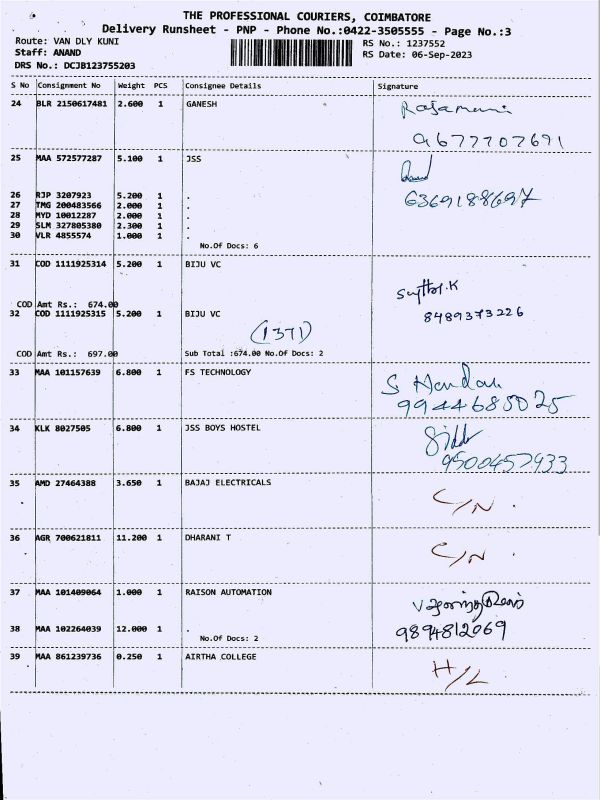 THE PROFESSIONAL COURIERS, COIMBATORE
Delivery Runsheet - PNP - Phone No.:0422-3505555 - Page No.:3
Route: VAN DLY KUNI
RS No.: 1237552
Staff: ANAND
RS Date: 06-Sep-2023
DRS No.: DCJB123755203
S No Consignment No Weight PCS Consignee Details Signature
24 BLR 2150617481 2.600 1 GANESH
9677707691
25 MAA 572577287 5.100 1 JSS
26 RJP 3207923 5.200 1 .
6369188697
27 TMG 200483566 2.000 1 .
28 MYD 10012287 2.000 1 .
29 SLM 327805380 2.300 1 .
30 VLR 4855574 1.000 1 .
No.Of Docs: 6
31 COD 1111925314 5.200 1 BIJU VC
COD Amt Rs.: 674.00
32 COD 1111925315 5.200 1 BIJU VC
8489373226
(1371)
COD Amt Rs.: 697.00 Sub Total :674.00 No.Of Docs: 2
33 MAA 101157639 6.800 1 FS TECHNOLOGY
9944685025
34 KLK 8027505 6.800 1 JSS BOYS HOSTEL
9500457933
35 AMD 27464388 3.650 1 BAJAJ ELECTRICALS
C/N .
36 AGR 700621811 11.200 1 DHARANI T
C/N .
37 MAA 101409064 1.000 1 RAISON AUTOMATION
38 MAA 102264039 12.000 1 .
9894812069
No.Of Docs: 2
39 MAA 861239736 0.250 1 AIRTHA COLLEGE
H/L